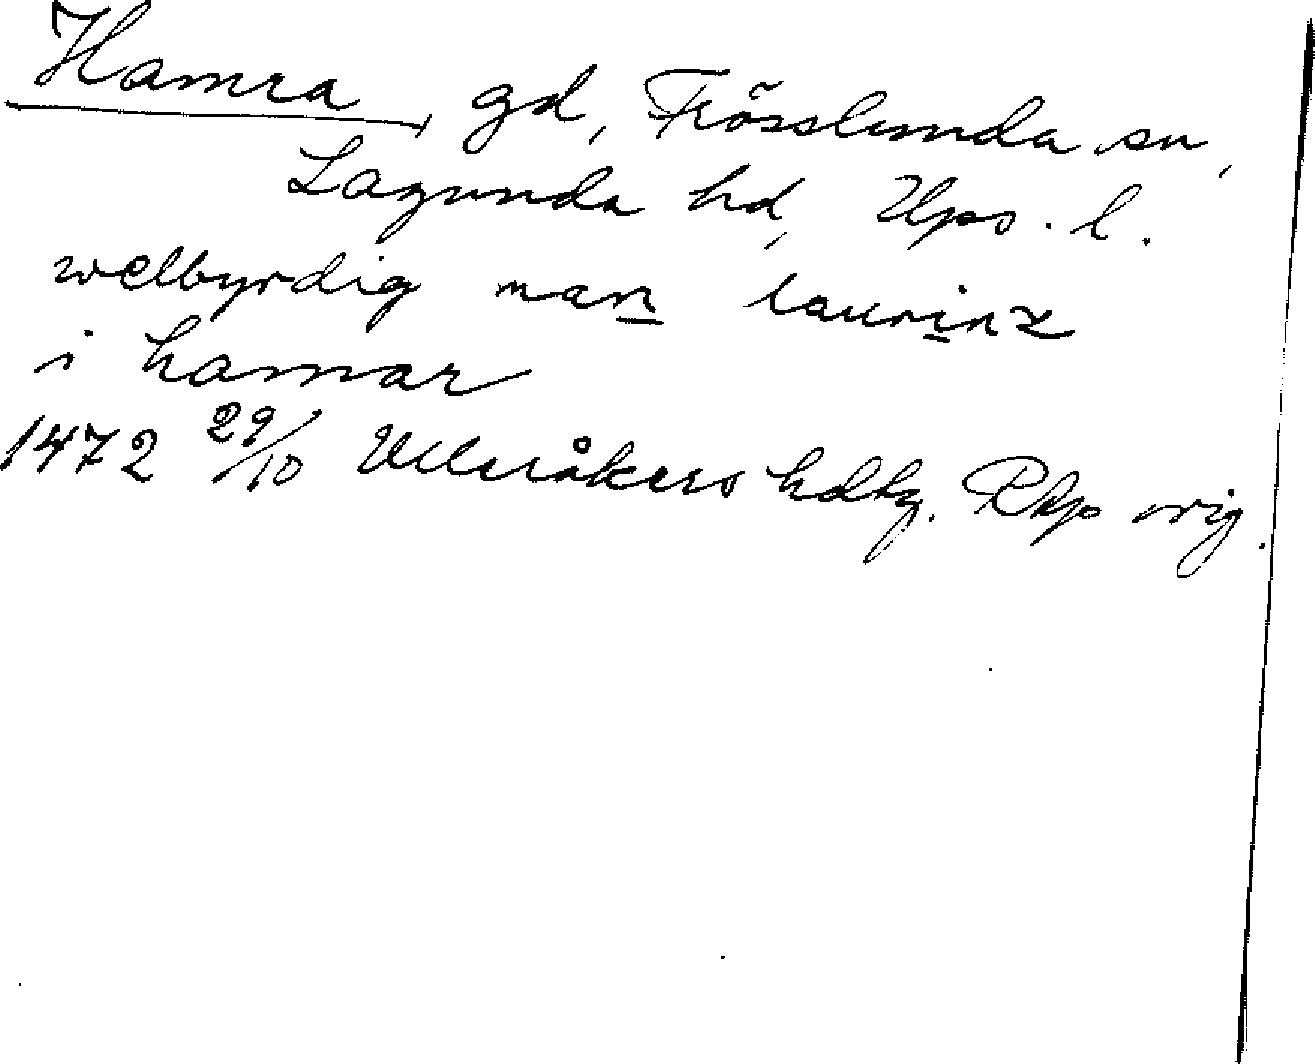 Hamra, gd, Frösslunda sn,
Lagunda hd, Ups. l.
welbyrdig man laurinz
i hamar
1472 29/10 Ulleråkers hdtg. RAp orig.